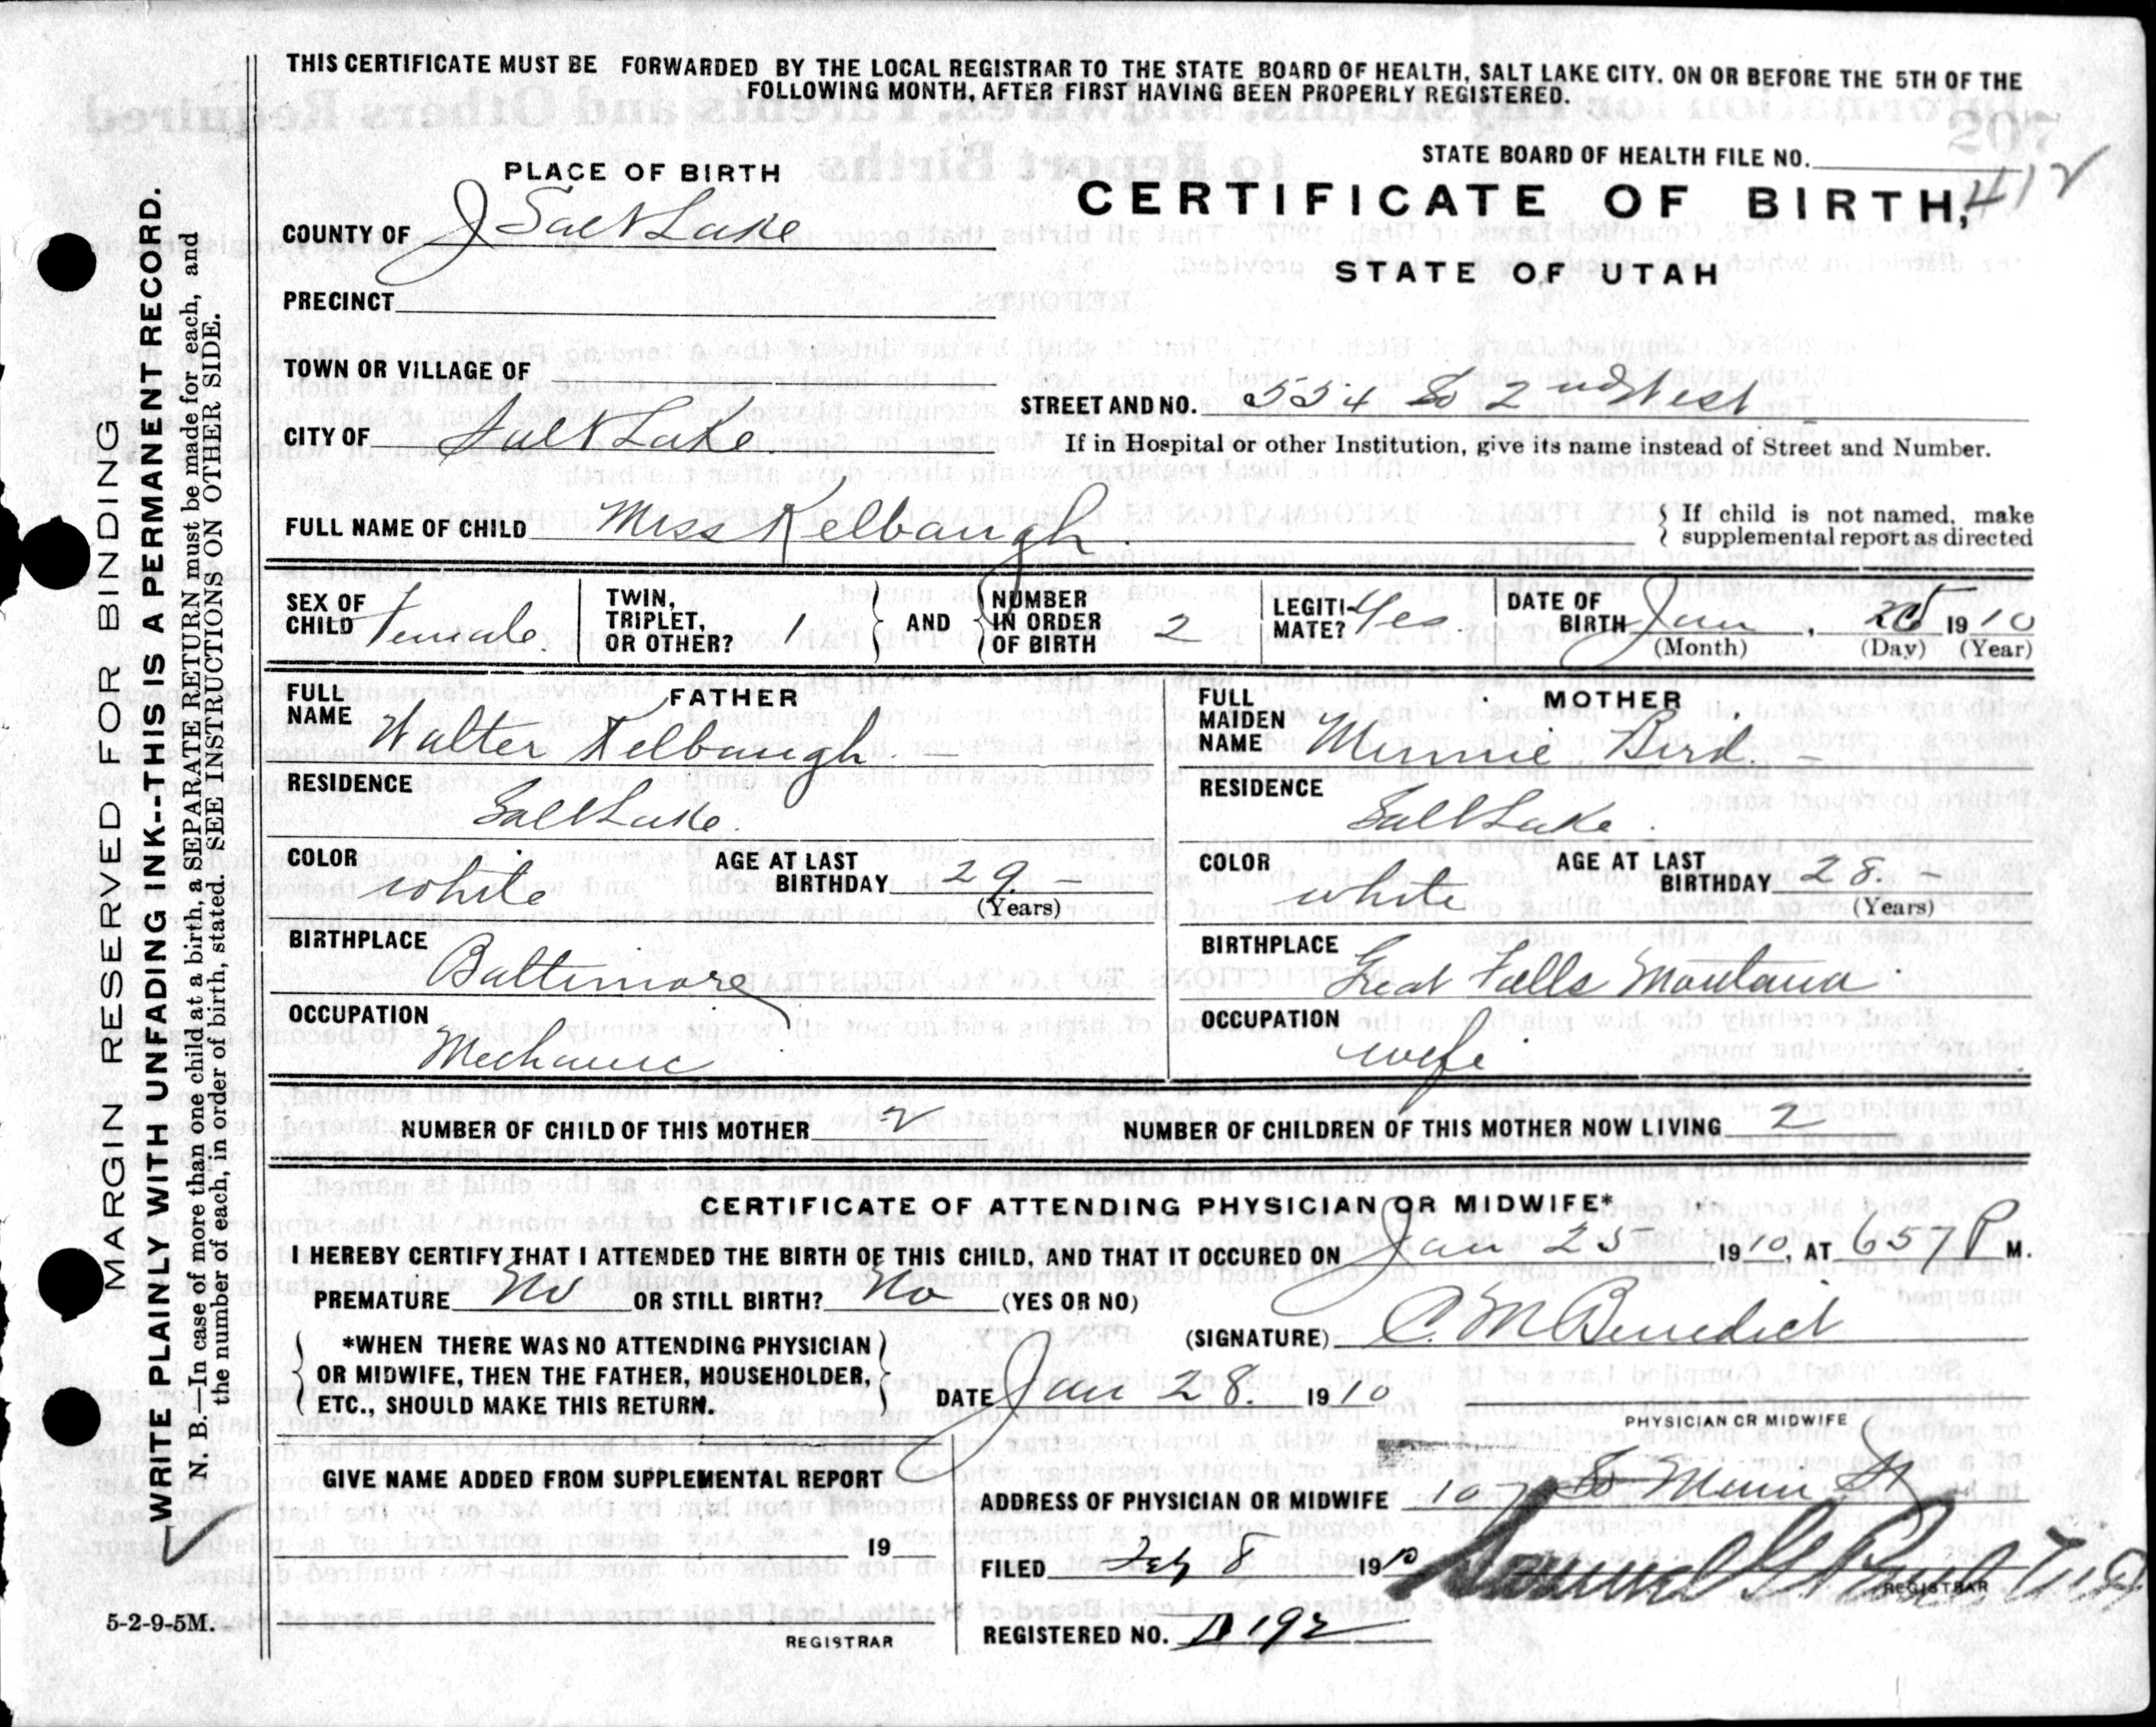 THIS CERTIFICATE MUST BE FORWARDED BY THE LOCAL REGISTRAR TO THE STATE BOARD OF HEALTH, SALT LAKE CITY, ON OR BEFORE THE 5TH OF THE
FOLLOWING MONTH, AFTER FIRST HAVING BEEN PROPERLY REGISTERED.
PLACE OF BIRTH
STATE BOARD OF HEALTH FILE NO.
207
412
CERTIFICATE OF BIRTH,
STATE OF UTAH
COUNTY OF Salt Lake
PRECINCT
TOWN OR VILLAGE OF
STREET AND NO. 554 So 2nd West
CITY OF Salt Lake.
If in Hospital or other Institution, give its name instead of Street and Number.
FULL NAME OF CHILD Miss Kelbaugh
If child is not named, make
supplemental report as directed
SEX OF CHILD Female
TWIN, TRIPLET, OR OTHER? 1 AND NUMBER IN ORDER OF BIRTH 2
LEGITIMATE? Yes
DATE OF BIRTH Jan, 25 1910
(Month) (Day) (Year)
FATHER
FULL NAME Walter Kelbaugh
RESIDENCE
Salt Lake
COLOR white AGE AT LAST BIRTHDAY 29
(Years)
BIRTHPLACE
Baltimore
OCCUPATION
Mechanic
MOTHER
FULL MAIDEN NAME Minnie Bird
RESIDENCE
Salt Lake
COLOR white AGE AT LAST BIRTHDAY 28.
(Years)
BIRTHPLACE
Great Falls Montana
OCCUPATION
wife
NUMBER OF CHILD OF THIS MOTHER 2 NUMBER OF CHILDREN OF THIS MOTHER NOW LIVING 2
CERTIFICATE OF ATTENDING PHYSICIAN OR MIDWIFE*
I HEREBY CERTIFY THAT I ATTENDED THE BIRTH OF THIS CHILD, AND THAT IT OCCURED ON Jan 25 1910, AT 657 P M.
PREMATURE No OR STILL BIRTH? No (YES OR NO)
*WHEN THERE WAS NO ATTENDING PHYSICIAN
OR MIDWIFE, THEN THE FATHER, HOUSEHOLDER,
ETC., SHOULD MAKE THIS RETURN.
(SIGNATURE) C. M Benedict
DATE Jan 28. 1910
PHYSICIAN OR MIDWIFE
GIVE NAME ADDED FROM SUPPLEMENTAL REPORT
19
REGISTRAR
ADDRESS OF PHYSICIAN OR MIDWIFE So Main St
FILED Feb 8 1910
REGISTRAR
REGISTERED NO. 192
5-2-9-5M.
MARGIN RESERVED FOR BINDING
WRITE PLAINLY WITH UNFADING INK--THIS IS A PERMANENT RECORD.
N. B.—In case of more than one child at a birth, a SEPARATE RETURN must be made for each, and
the number of each, in order of birth, stated. SEE INSTRUCTIONS ON OTHER SIDE.